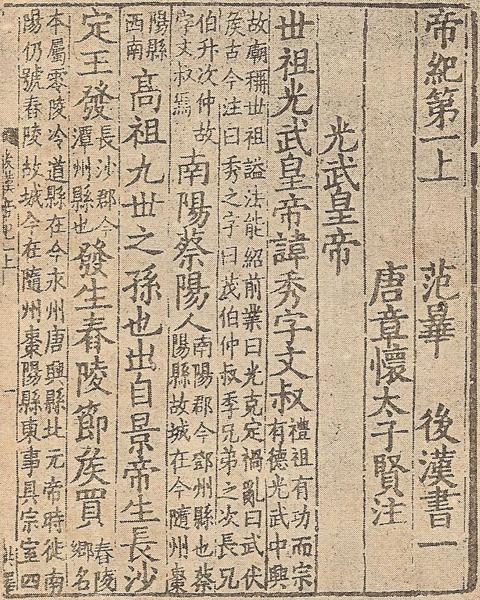 帝紀第一上 范曄 後漢書一
唐章懷太子賢注
光武皇帝
世祖光武皇帝諱秀字文叔
禮祖有功而宗
有德光武中興
故廟稱世祖謚法能紹前業曰光克定禍亂曰武伏
矦古今注曰秀之字曰茂伯仲叔季兄弟之次長兄
伯升次仲故
字文叔焉
南陽蔡陽人
南陽郡今鄧州縣也蔡
陽縣故城在今隨州棗
陽縣
西南
高祖九世之孫也出自景帝生長沙
定王發
長沙郡今
潭州縣也
發生舂陵節矦買
舂陵
鄉名
本屬零陵冷道縣在今永州唐興縣北元帝時徙南
陽仍號舂陵故城今在隨州棗陽縣東事具宗室四